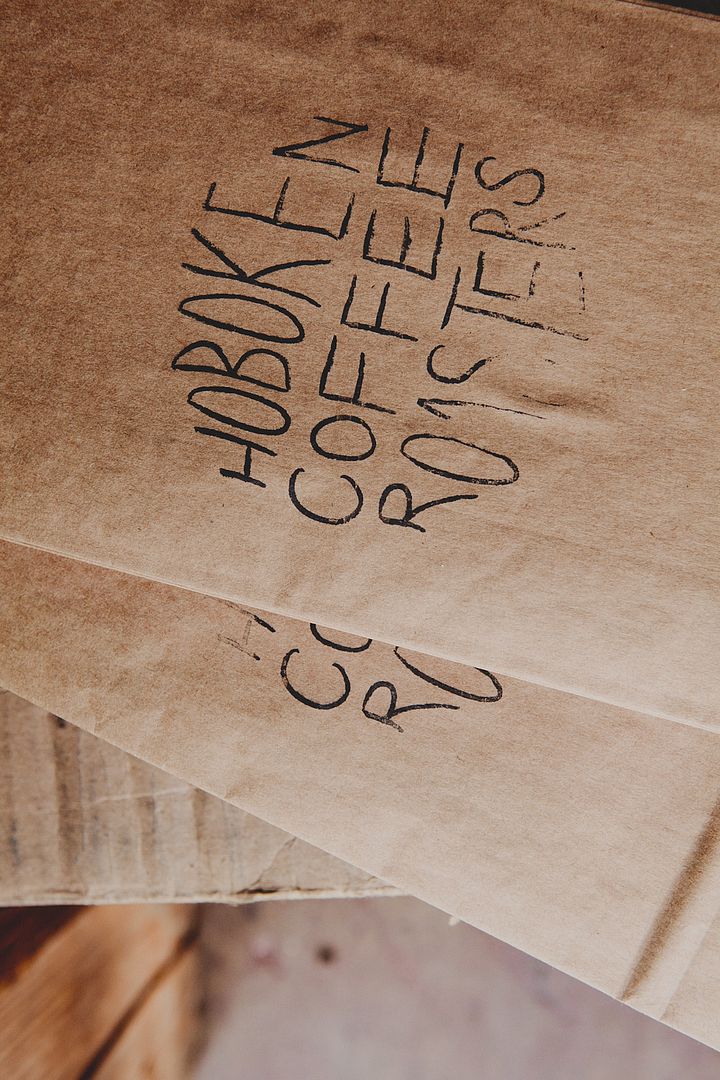 HOBOKEN
COFFEE
ROASTERS
H
CO
RO